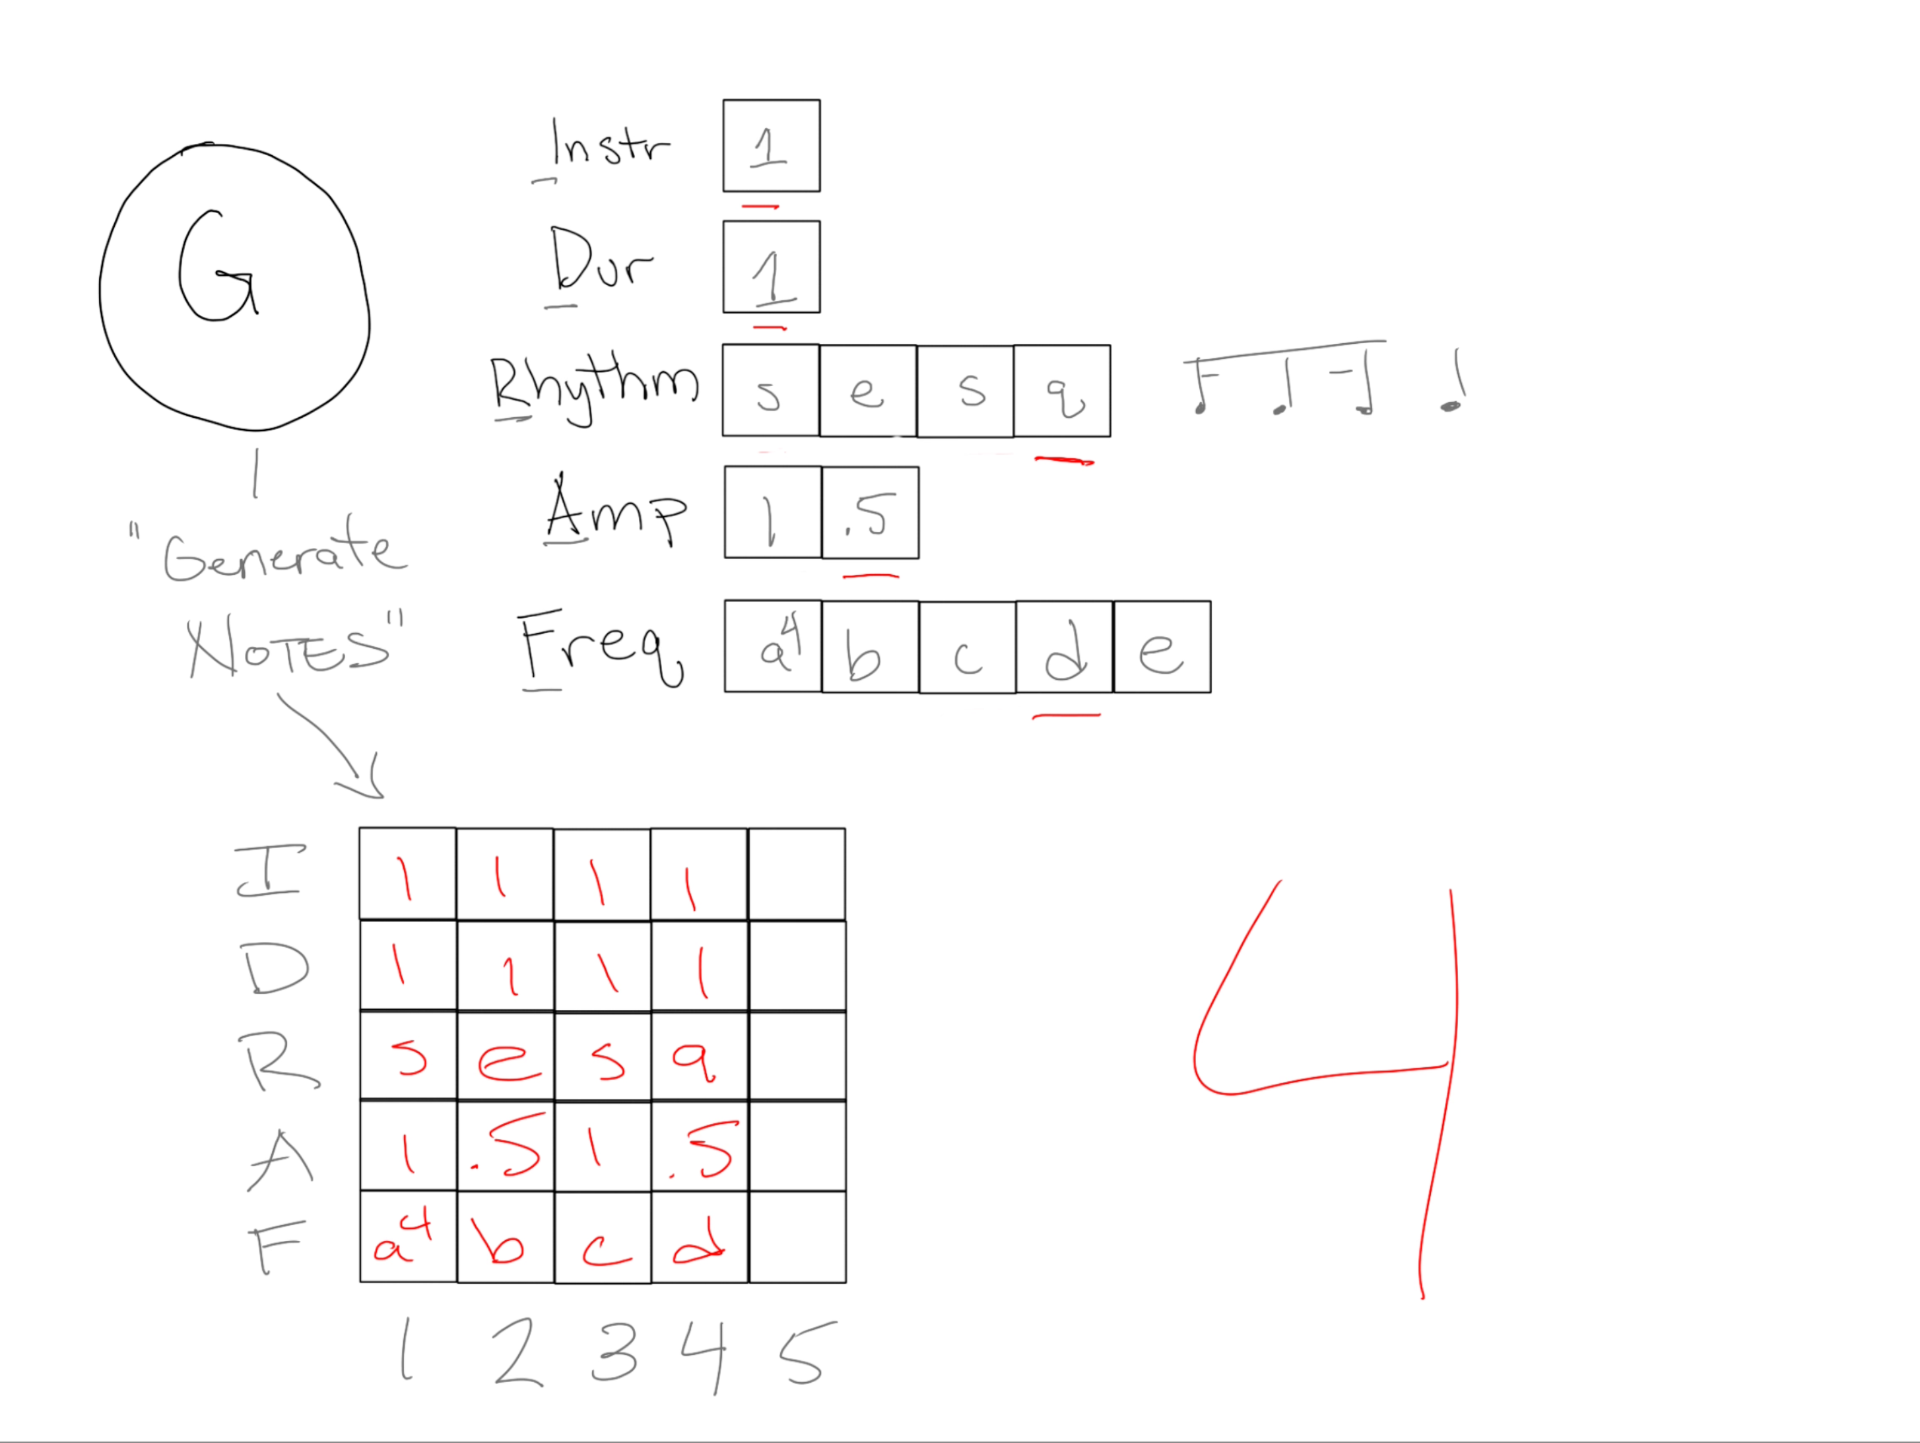 G
"Generate
NOTES"
Instr 1
Dur 1
Rhythm s e s q
Amp 1 .5
Freq a⁴ b c d e
I 1 1 1 1
D 1 1 1 1
R s e s q
A 1 .5 1 .5
F a⁴ b c d
1 2 3 4 5
4